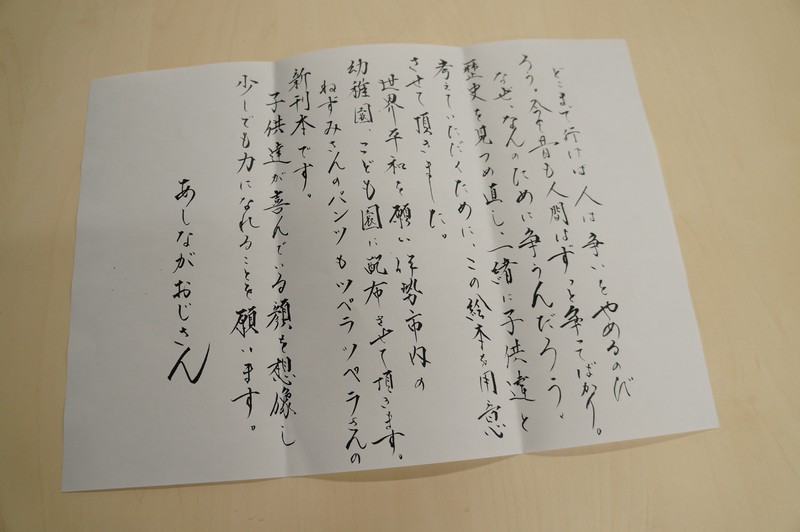 どこまで行けば人は争いをやめるのだ
ろう。今も昔も人間はずっと争ってばかり。
なぜ、なんのために争うんだろう。
歴史を見つめ直し、一緒に子供達と
考えていただくために、この絵本を用意
させて頂きました。
世界平和を願い伊勢市内の
幼稚園、こども園に配布させて頂きます。
ねずみさんのパンツもツペラツペラさんの
新刊本です。
子供達が喜んでいる顔を想像し
少しでも力になれることを願います。
あしながおじさん